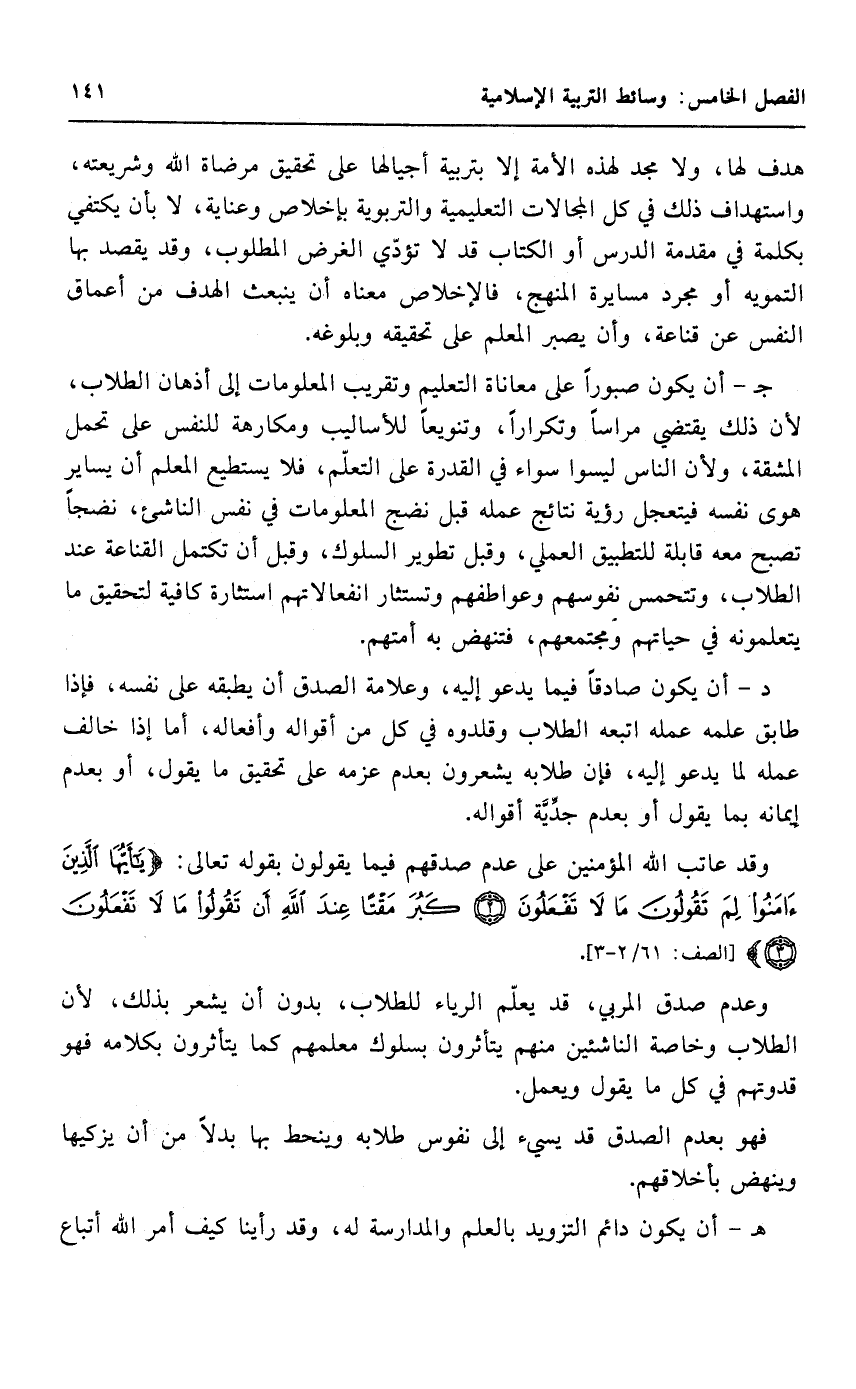 الفصل الخامس: وسائط التربية الإسلامية ١٤١
هدف لها، ولا مجد لهذه الأمة إلا بتربية أجيالها على تحقيق مرضاة الله وشريعته،
واستهداف ذلك في كل المجالات التعليمية والتربوية بإخلاص وعناية، لا بأن يكتفي
بكلمة في مقدمة الدرس أو الكتاب قد لا تؤدّي الغرض المطلوب، وقد يقصد بها
التمويه أو مجرد مسايرة المنهج، فالإخلاص معناه أن ينبعث الهدف من أعماق
النفس عن قناعة، وأن يصبر المعلم على تحقيقه وبلوغه.
جـ - أن يكون صبوراً على معاناة التعليم وتقريب المعلومات إلى أذهان الطلاب،
لأن ذلك يقتضي مراساً وتكراراً، وتنويعاً للأساليب ومكارهة للنفس على تحمل
المشقة، ولأن الناس ليسوا سواء في القدرة على التعلّم، فلا يستطيع المعلم أن يساير
هوى نفسه فيتعجل رؤية نتائج عمله قبل نضج المعلومات في نفس الناشئ، نضجاً
تصبح معه قابلة للتطبيق العملي، وقبل تطوير السلوك، وقبل أن تكتمل القناعة عند
الطلاب، وتتحمس نفوسهم وعواطفهم وتستثار انفعالاتهم استثارة كافية لتحقيق ما
يتعلمونه في حياتهم ومجتمعهم، فتنهض به أمتهم.
د - أن يكون صادقاً فيما يدعو إليه، وعلامة الصدق أن يطبقه على نفسه، فإذا
طابق علمه عمله اتبعه الطلاب وقلدوه في كل من أقواله وأفعاله، أما إذا خالف
عمله لما يدعو إليه، فإن طلابه يشعرون بعدم عزمه على تحقيق ما يقول، أو بعدم
إيمانه بما يقول أو بعدم جدِّيَّة أقواله.
وقد عاتب الله المؤمنين على عدم صدقهم فيما يقولون بقوله تعالى: ﴿يَٰٓأَيُّهَا ٱلَّذِينَ
ءَامَنُواْ لِمَ تَقُولُونَ مَا لَا تَفْعَلُونَ ۝٢ كَبُرَ مَقْتًا عِندَ ٱللَّهِ أَن تَقُولُواْ مَا لَا تَفْعَلُونَ
۝٣﴾ [الصف: ٦١/٢-٣].
وعدم صدق المربي، قد يعلّم الرياء للطلاب، بدون أن يشعر بذلك، لأن
الطلاب وخاصة الناشئين منهم يتأثرون بسلوك معلمهم كما يتأثرون بكلامه فهو
قدوتهم في كل ما يقول ويعمل.
فهو بعدم الصدق قد يسيء إلى نفوس طلابه وينحط بها بدلاً من أن يزكيها
وينهض بأخلاقهم.
هـ - أن يكون دائم التزويد بالعلم والمدارسة له، وقد رأينا كيف أمر الله أتباع